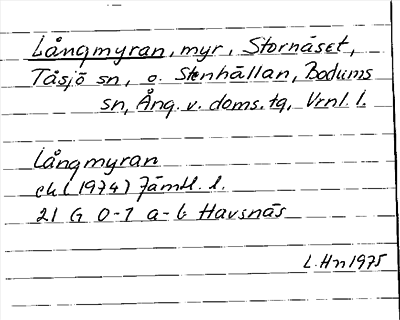 Långmyran, myr, Stornäset,
Tåsjö sn, o. Stenhällan, Bodums
sn, Ång. v. doms. tg, Vrnl. l.
Långmyran
ek (1974) Jämtl. l.
21 G 0-1 a-b Havsnäs
L. Hn 1975